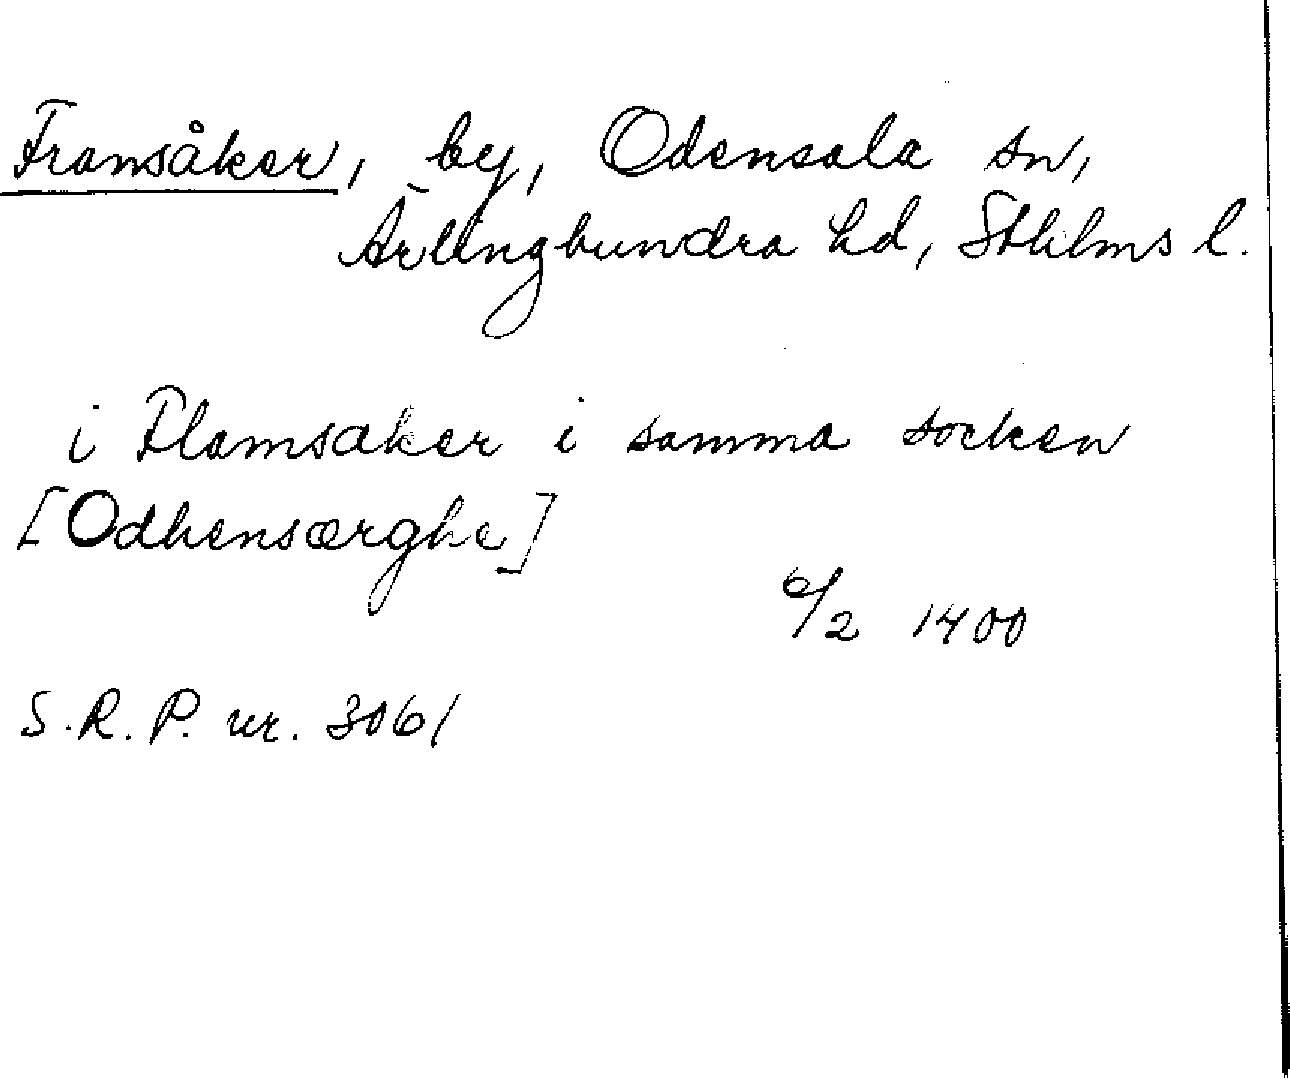 Fransåker, by, Odensala sn,
Ärlingbundra hd, Sthlms l.
i Flamsaker i samma socken
[Odhensærghe]
6/2 1400
S.R.P. nr. 3061